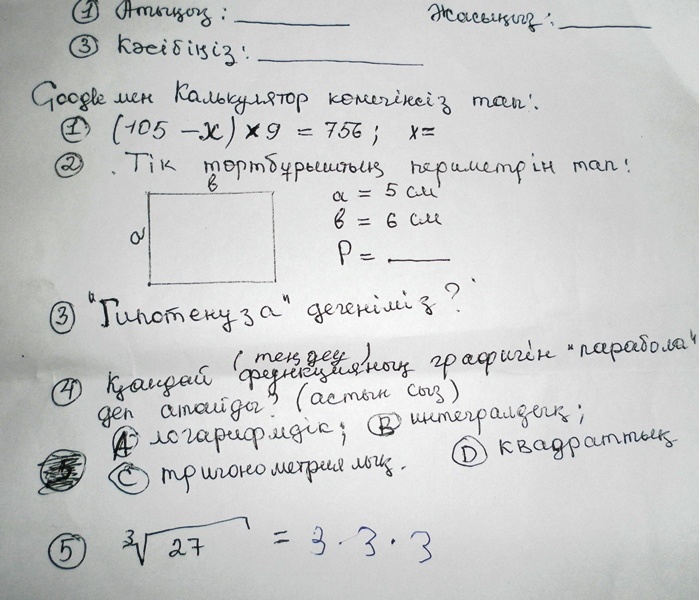 ① Атыңыз: ________ Жасыңыз: ________
③ Кәсібіңіз: ________
Google мен Калькулятор көмегінсіз тап:
① (105 - x) × 9 = 756; x=
② . Тік төртбұрыштың периметрін тап:
в
а
а = 5 см
в = 6 см
P = ____
③ "Гипотенуза" дегеніміз?
④ Қандай (теңдеу) функцияның графигін "парабола"
деп атайды? (астын сыз)
Ⓐ логарифмдік; Ⓑ интегралдық;
Ⓒ тригонометриялық. Ⓓ квадраттық
⑤ ∛27 = 3 · 3 · 3